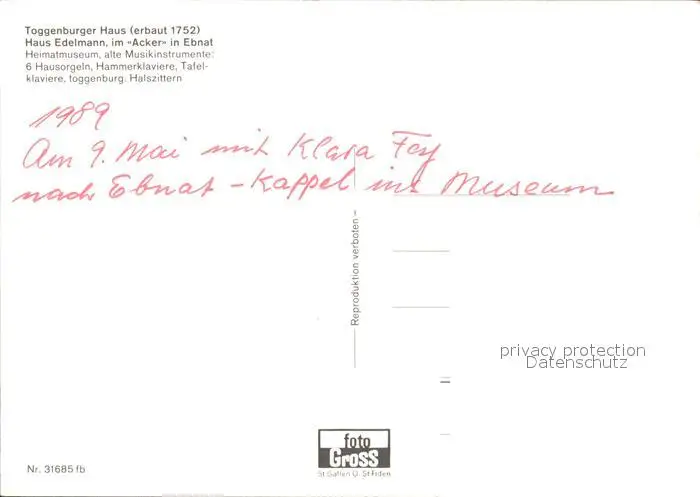 Toggenburger Haus (erbaut 1752)
Haus Edelmann, im «Acker» in Ebnat
Heimatmuseum, alte Musikinstrumente:
6 Hausorgeln, Hammerklaviere, Tafel-
klaviere, toggenburg. Halszittern
1989
Am 9. Mai mit Klara Fey
nach Ebnat-Kappel ins Museum
– Reproduktion verboten –
privacy protection
Datenschutz
foto
Gross
St.Gallen O. St.Fiden
Nr. 31685 fb